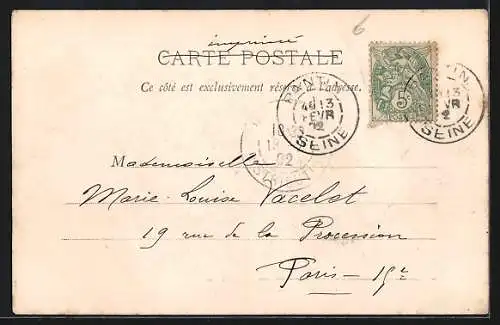 6
imprimé
CARTE POSTALE
Ce côté est exclusivement réservé à l'adresse.
PANTIN
13
FEVR
SEINE
5
PANTIN
13
FEVR
SEINE
Mademoiselle
Marie-Louise Vacelet
19 rue de la Procession
Paris - 15e